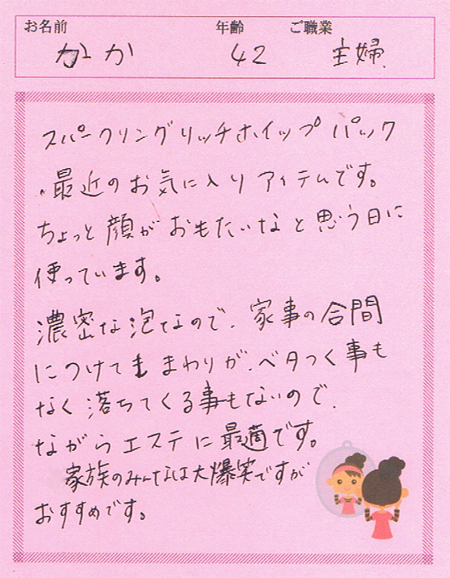 お名前 年齢 ご職業
かか 42 主婦
スパークリングリッチホイップパック
・最近のお気に入りアイテムです。
ちょっと顔がおもたいなと思う日に
使っています。
濃密な泡なので、家事の合間
につけてもまわりが、ベタつく事も
なく落ちてくる事もないので、
ながらエステに最適です。
家族のみんなは大爆笑ですが
おすすめです。